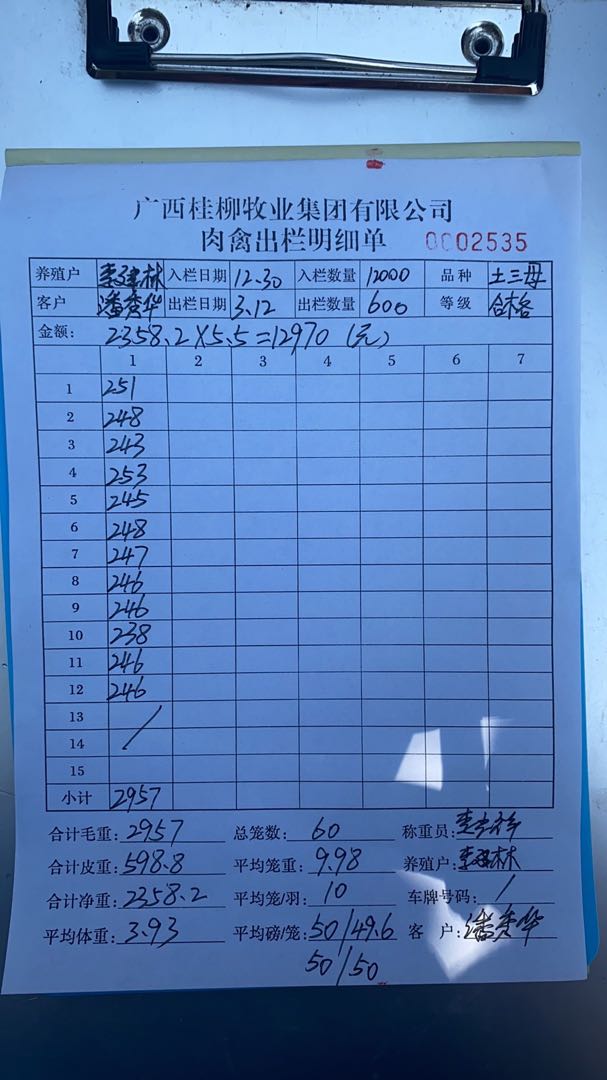 广西桂柳牧业集团有限公司
肉禽出栏明细单 0002535
养殖户 李建林 入栏日期 12.30 入栏数量 12000 品种 土三母
客户 潘秀华 出栏日期 3.12 出栏数量 600 等级 合格
金额: 2358.2×5.5=12970(元)
1 2 3 4 5 6 7
1 251
2 248
3 243
4 253
5 245
6 248
7 247
8 246
9 246
10 238
11 246
12 246
13
14
15
小计 2957
合计毛重: 2957 总笼数: 60 称重员:
合计皮重: 598.8 平均笼重: 9.98 养殖户: 李建林
合计净重: 2358.2 平均笼/羽: 10 车牌号码: /
平均体重: 3.93 平均磅/笼: 50/49.6 客 户: 潘秀华
50/50